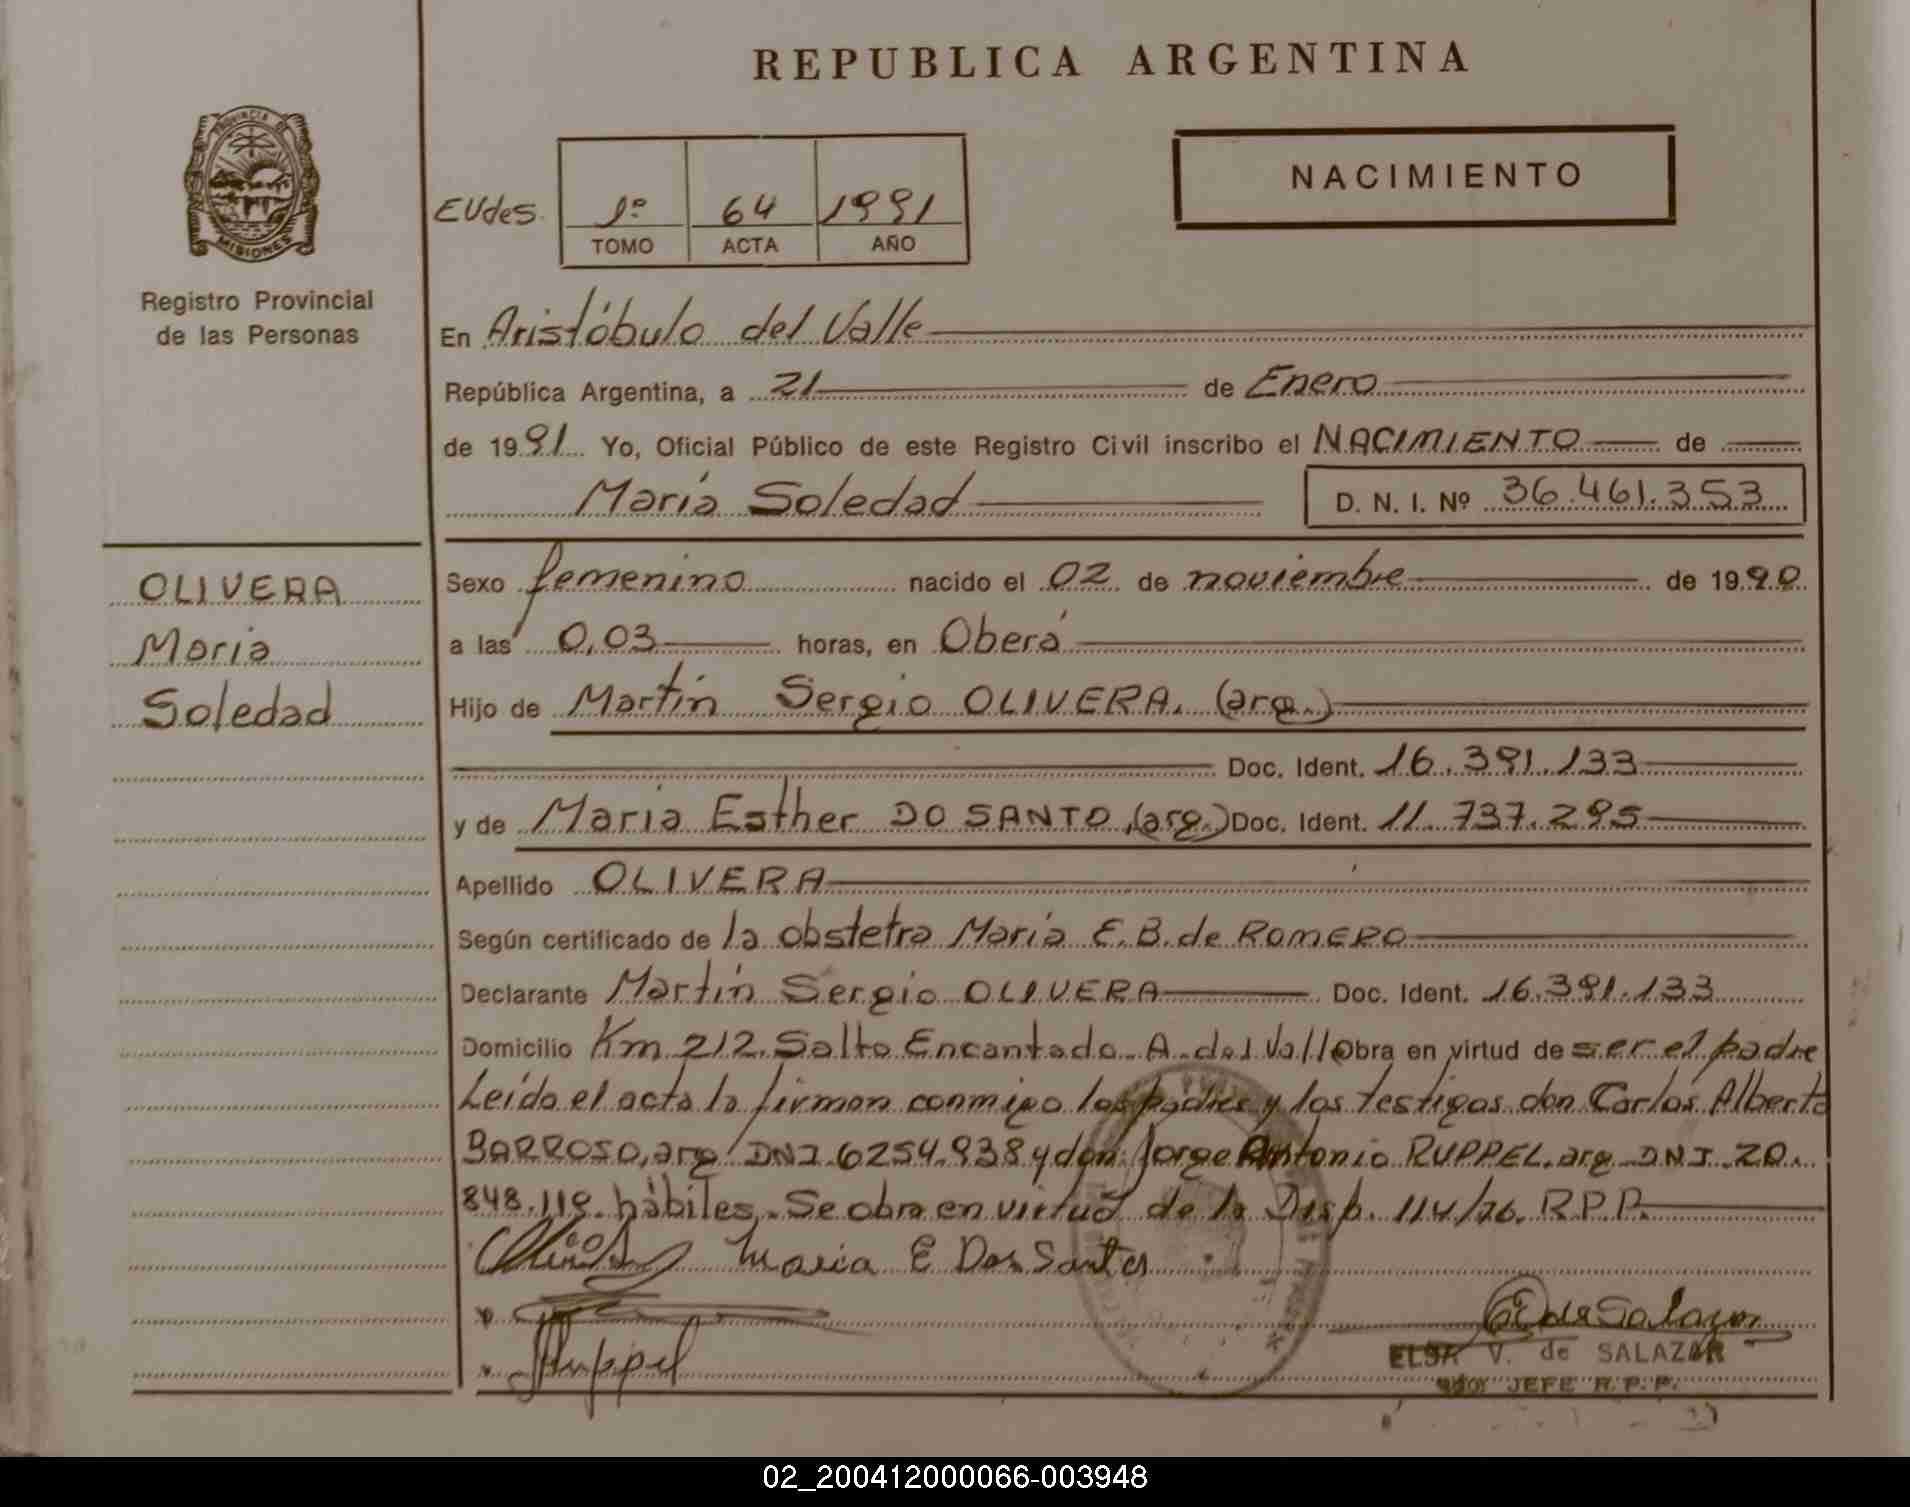 REPUBLICA ARGENTINA
PROVINCIA DE
MISIONES
Registro Provincial
de las Personas
NACIMIENTO
EUdes. 1º 64 1991
TOMO ACTA AÑO
En Aristóbulo del Valle
República Argentina, a 21 de Enero
de 1991 Yo, Oficial Público de este Registro Civil inscribo el NACIMIENTO de
María Soledad D. N. I. Nº 36.461.353
OLIVERA
Maria
Soledad
Sexo femenino nacido el 02 de noviembre de 1990
a las 0,03 horas, en Oberá
Hijo de Martín Sergio OLIVERA. (arg.)
Doc. Ident. 16.391.133
y de Maria Esther DO SANTO, (arg.) Doc. Ident. 11.737.295
Apellido OLIVERA
Según certificado de la obstetra María E. B. de ROMERO
Declarante Martín Sergio OLIVERA Doc. Ident. 16.391.133
Domicilio Km 212. Salto Encantado. A. del Valle Obra en virtud de ser el padre
Leída el acta la firman conmigo los padres y los testigos don Carlos Alberto
BARROSO, arg DNI 6254.938 y don Jorge Antonio RUPPEL. arg DNI. 20.
848.118. hábiles. Se obra en virtud de la Disp. 114/76. R.P.P.
Maria E Dos Santos
Ruppel
E de Salazar
ELSA V. de SALAZAR
JEFE R. P. P.
02_200412000066-003948